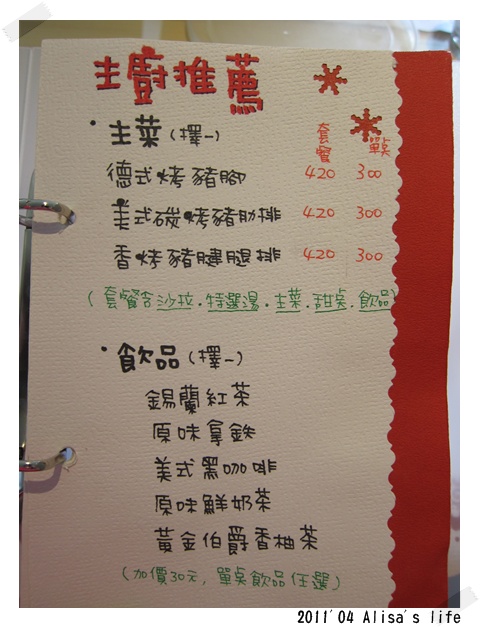 主廚推薦
・主菜(擇一) 套餐 單點
德式烤豬腳 420 300
美式碳烤豬肋排 420 300
香烤豬腱腿排 420 300
(套餐含沙拉.特選湯.主菜.甜點.飲品)
・飲品(擇一)
錫蘭紅茶
原味拿鉄
美式黑咖啡
原味鮮奶茶
黃金伯爵香柚茶
(加價30元,單點飲品任選)
2011'04 Alisa's life